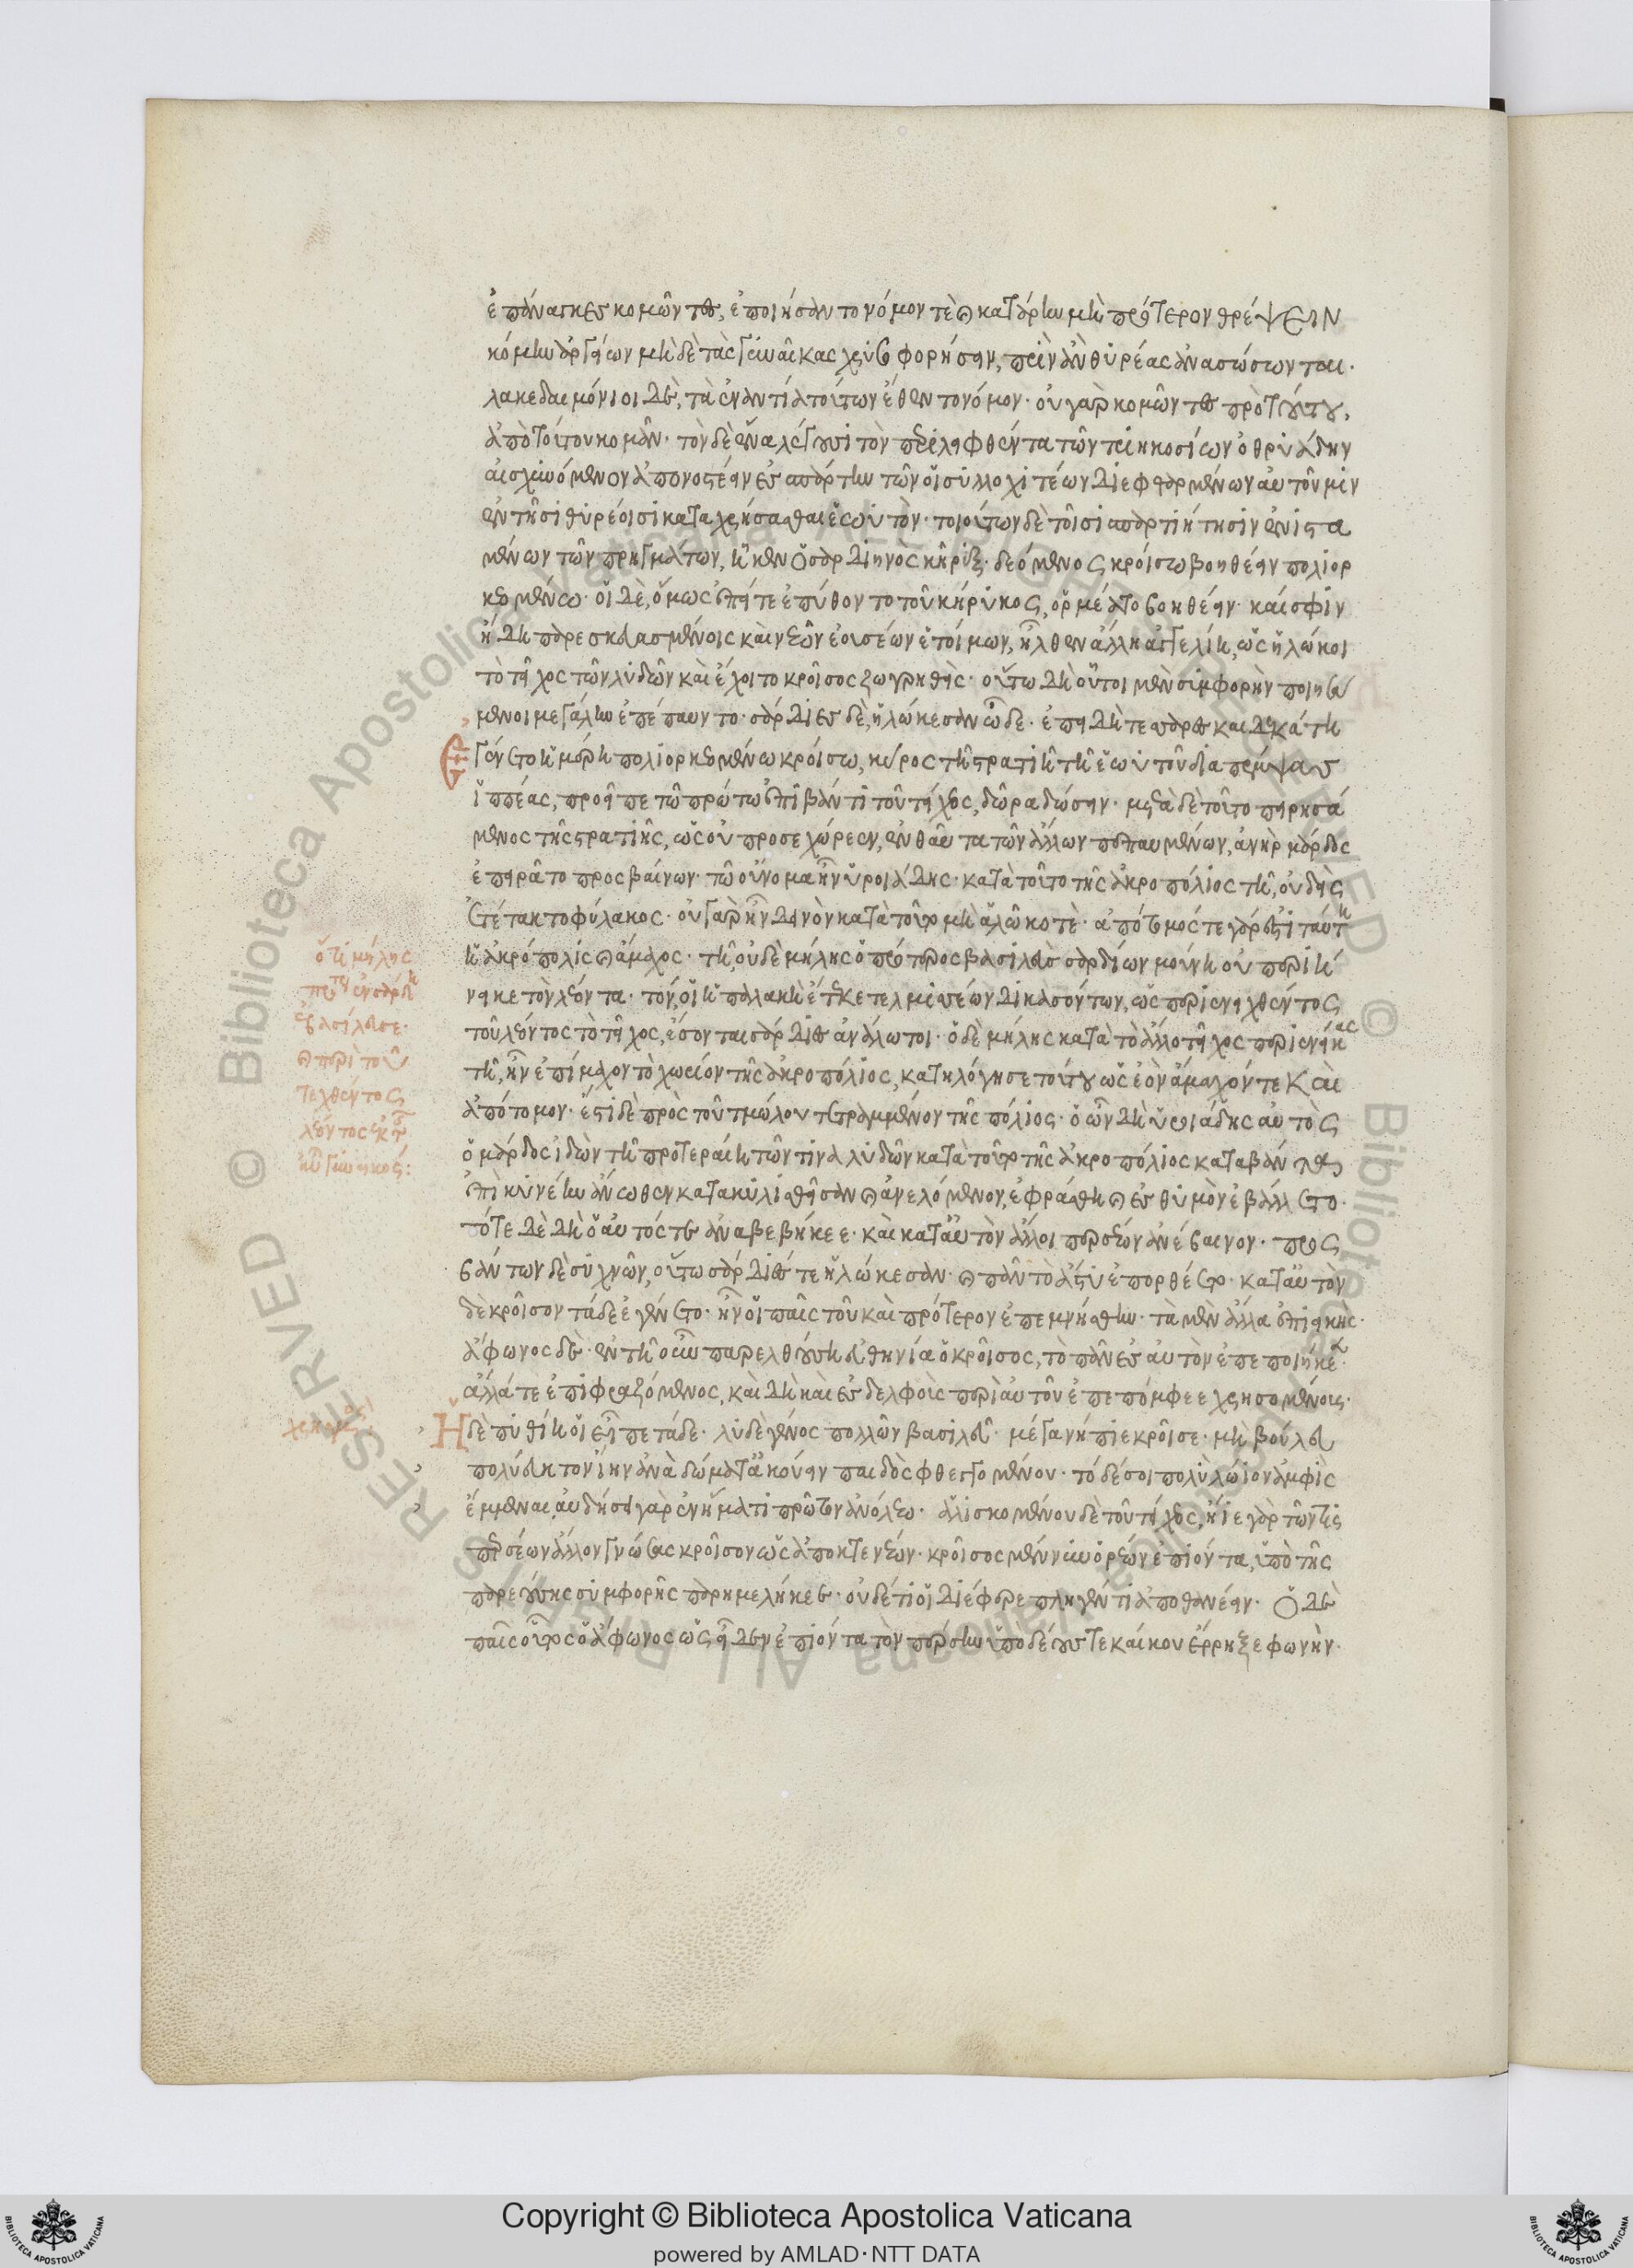 ἐπάναγκες κομῶντες, ἐποιήσαντο νόμον τὲ καὶ κατάρην μὴ πρότερον θρέψειν
κόμην ἀργείων μηδὲ τὰς γυναῖκας χρυσοφορήσειν, πρὶν ἂν θυρέας ἀνασώσωνται·
λακεδαιμόνιοι δὲ, τὰ ἐναντία τούτων ἔθεντο νόμον· οὐ γὰρ κομῶντες πρὸ τούτου,
ἀπὸ τούτου κομᾶν· τὸν δὲ ἕνα λέγουσι τὸν περιλειφθέντα τῶν τριηκοσίων ὀθρυάδην
αἰσχυνόμενον ἀπονοστέειν ἐς σπάρτην τῶν οἱ συλλοχιτέων διεφθαρμένων αὐτοῦ μιν
ἐν τῆσι θυρέοισι καταχρήσασθαι ἑωυτόν· τοιούτων δὲ τοῖσι σπαρτιήτησιν ἐνιστα
μένων τῶν πρηγμάτων, ἧκεν ὁ σαρδιηνὸς κῆρυξ· δεόμενος κροίσω βοηθέειν πολιορ
κεομένω· οἱ δὲ, ὅμως ἐπείτε ἐπύθοντο τοῦ κήρυκος, ὁρμέατο βοηθέειν· καί σφιν
ἤδη παρεσκευασμένοις καὶ νεῶν ἐουσέων ἑτοίμων, ἦλθεν ἄλλη ἀγγελίη, ὡς ἡλώκοι
τὸ τεῖχος τῶν λυδῶν καὶ ἔχοιτο κροῖσος ζωγρηθείς· οὕτω δὴ οὗτοι μὲν συμφορὴν ποιησά
μενοι μεγάλην ἐπέπαυντο· σάρδιες δὲ, ἡλώκεσαν ὧδε· ἐπειδὴ τεσσαρεσκαιδεκάτη
ἐγένετο ἡμέρη πολιορκεομένω κροίσω, κῦρος τῆ στρατιῆ τῆ ἑωυτοῦ διαπέμψας
ἱππέας, προεῖπε τῶ πρώτω ἐπιβάντι τοῦ τείχεος, δῶρα δώσειν· μετὰ δὲ τοῦτο πειρησα
μένος τῆς στρατιῆς, ὡς οὐ προσεχώρεεν, ἐνθαῦτα τῶν ἄλλων πεπαυμένων, ἀνὴρ μάρδος
ἐπειρᾶτο προσβαίνων· τῶ οὔνομα ἦν ὑροιάδης· κατὰ τοῦτο τῆς ἀκροπόλιος τῆ, οὐδεὶς
ἐτέτακτο φύλακος· οὐ γὰρ ἦν δεινὸν κατὰ τοῦτο μὴ ἁλῶ κοτέ· ἀπότομός τε γάρ ἐστι ταύτη
ἡ ἀκρόπολις καὶ ἄμαχος· τῆ, οὐδὲ μήλης ὁ πρότερος βασιλεὺς σαρδίων μούνη οὐ περιή
νεικε τὸν λέοντα· τόν, οἱ ἡ παλλακὴ ἔτεκε τελμισσέων δικασόντων, ὡς περιενειχθέντος
τοῦ λέοντος τὸ τεῖχος, ἔσονται σάρδιες ἀνάλωτοι· ὁ δὲ μήλης κατὰ τὸ ἄλλο τεῖχος περιενείκας
τῆ, ἦν ἐπίμαχον τὸ χωρίον τῆς ἀκροπόλιος, κατηλόγησε τούτου ὡς ἐὸν ἄμαχόν τε καὶ
ἀπότομον· ἔστι δὲ πρὸς τοῦ τμώλου τετραμμένον τῆς πόλιος· ὁ ὦν δὴ ὑροιάδης αὐτὸς
ὁ μάρδος ἰδὼν τῆ προτεραίη τῶν τινὰ λυδῶν κατὰ τοῦτο τῆς ἀκροπόλιος καταβάντα
ἐπὶ κυνέην ἄνωθεν κατακυλισθεῖσαν καὶ ἀνελόμενον, ἐφράσθη καὶ ἐς θυμὸν ἐβάλλετο·
τότε δὲ δὴ ὁ αὐτός τε ἀναβεβήκεε· καὶ κατ' αὐτὸν ἄλλοι περσέων ἀνέβαινον· προς
βάντων δὲ συχνῶν, οὕτω σάρδιές τε ἡλώκεσαν· καὶ πᾶν τὸ ἄστυ ἐπορθέετο· κατ' αὐτὸν
δὲ κροῖσον τάδε ἐγένετο· ἦν οἱ παῖς τοῦ καὶ πρότερον ἐπεμνήσθην· τὰ μὲν ἄλλα ἐπιεικὴς·
ἄφωνος δέ· ἐν τῆ ὦν παρελθούση εὐθηνία ὁ κροῖσος, τὸ πᾶν ἐς αὐτὸν ἐπεποιήκεε·
ἄλλά τε ἐπιφραζόμενος, καὶ δὴ καὶ ἐς δελφοὺς περὶ αὐτοῦ ἐπεπόμφεε χρησομένους·
Ἡ δὲ πυθίη οἱ εἶπε τάδε· λυδὲ γένος πολλῶν βασιλεῦ· μέγα νήπιε κροῖσε· μὴ βούλευ
πολύευκτον ἰὴν ἀνὰ δώματ' ἀκούειν παιδὸς φθεγγομένου· τὸ δέ σοι πολὺ λώιον ἀμφὶς
ἔμμεναι, αὐδήσει γὰρ ἐν ἤματι πρῶτον ἀνόλβω· ἁλισκομένου δὲ τοῦ τείχεος, ἤιε γὰρ τῶν τις
περσέων ἄλλον γνώσας κροῖσον ὡς ἀποκτενέων· κροῖσος μέν νυν ὁρέων ἐπιόντα, ὑπὸ τῆς
παρεούσης συμφορῆς παρημελήκεε· οὐδέ τί οἱ διέφερε πληγέντι ἀποθανέειν· Ὁ δὲ
παῖς οὗτος ὁ ἄφωνος ὡς εἶδεν ἐπιόντα τὸν πέρσην ὑπὸ δέους τε καὶ κου ἔρρηξε φωνήν·
ὅτι μήλης
ἐβασίλευσε·
καὶ περὶ τοῦ
τεχθέντος
λέοντος ἐκ τῆς
αὐτοῦ γυναικός:
χρησμός
Copyright © Biblioteca Apostolica Vaticana
powered by AMLAD·NTT DATA